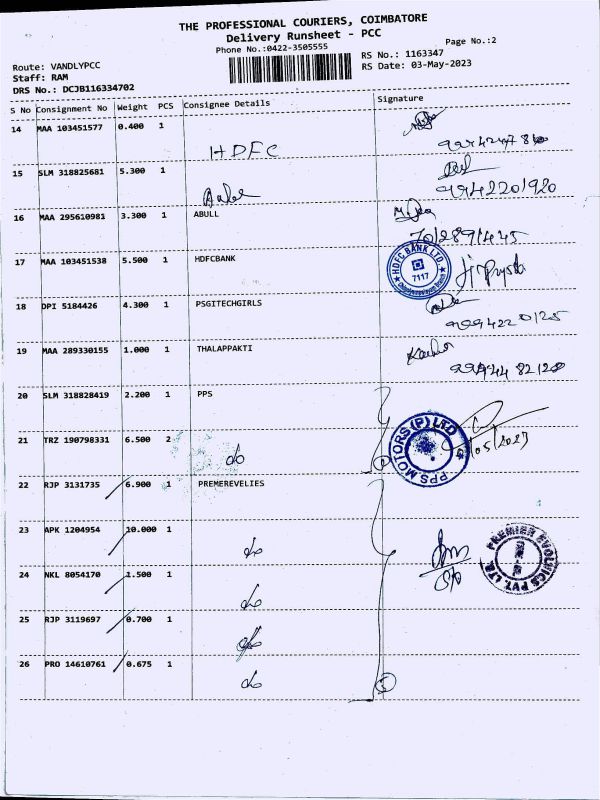 THE PROFESSIONAL COURIERS, COIMBATORE
Delivery Runsheet - PCC
Phone No.:0422-3505555
Page No.:2
Route: VANDLYPCC
RS No.: 1163347
Staff: RAM
RS Date: 03-May-2023
DRS No.: DCJB116334702
S No Consignment No Weight PCS Consignee Details Signature
14 MAA 103451577 0.400 1
HDFC
15 SLM 318825681 5.300 1
9942201920
16 MAA 295610981 3.300 1 ABULL
17 MAA 103451538 5.500 1 HDFCBANK
HDFC BANK LTD.
7117
18 DPI 5184426 4.300 1 PSGITECHGIRLS
9994220125
19 MAA 289330155 1.000 1 THALAPPAKTI
20 SLM 318828419 2.200 1 PPS
21 TRZ 190798331 6.500 2
do
PPS MOTORS (P) LTD
22 RJP 3131735 6.900 1 PREMEREVELIES
23 APK 1204954 10.000 1
do
PREMIER EVOLVICS PVT. LTD.
24 NKL 8054170 1.500 1
do
25 RJP 3119697 0.700 1
do
26 PRO 14610761 0.675 1
do
5